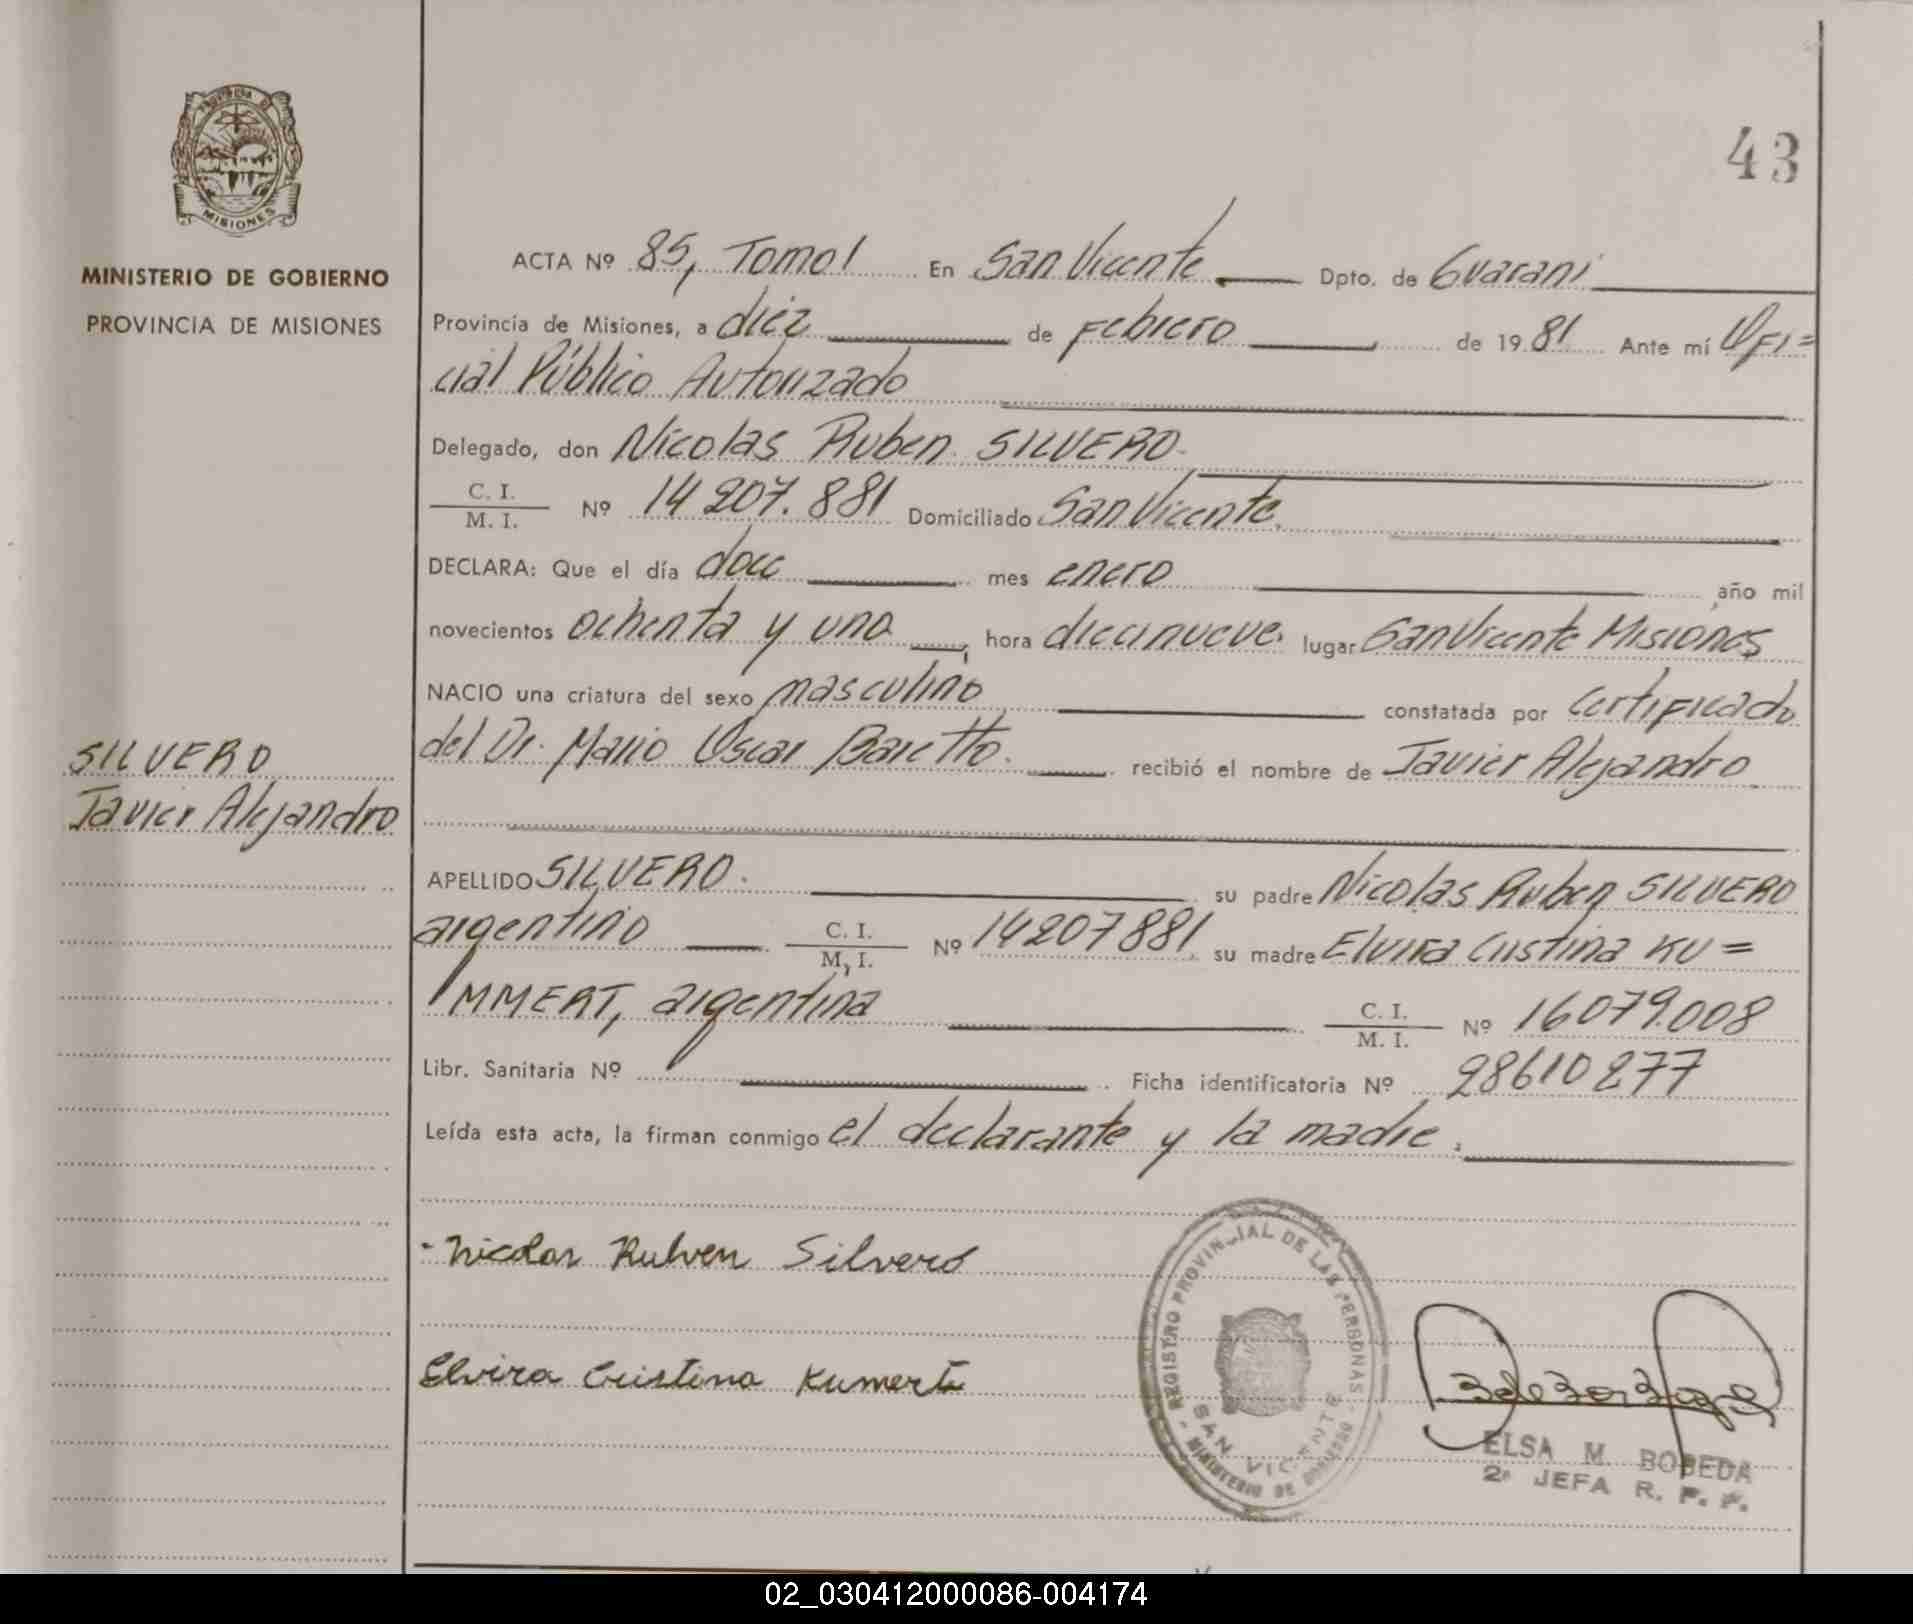 PROVINCIA DE
MISIONES
MINISTERIO DE GOBIERNO
PROVINCIA DE MISIONES
SILVERO
Javier Alejandro
43
ACTA Nº 85, Tomo I En San Vicente Dpto. de Guarani
Provincia de Misiones, a diéz de Febrero de 1981 Ante mí Ofi=
cial Público Autorizado
Delegado, don Nicolas Ruben SILVERO.
C. I. / M. I. Nº 14 207.881 Domiciliado San Vicente.
DECLARA: Que el día doce mes enero año mil
novecientos ochenta y uno, hora diecinueve. lugar San Vicente Misiones
NACIO una criatura del sexo masculino constatada por certificado
del Dr. Mario Oscar Baretto. recibió el nombre de Javier Alejandro
APELLIDO SILVERO. su padre Nicolas Ruben SILVERO
argentino C. I. / M, I. Nº 14207881 su madre Elvira Cristina KU=
MMERT, argentina C. I. / M. I. Nº 16079.008
Libr. Sanitaria Nº Ficha identificatoria Nº 28610277
Leída esta acta, la firman conmigo el declarante y la madre.
Nicolas Ruben Silvero
Elvira Cristina Kumert
REGISTRO PROVINCIAL DE LAS PERSONAS
SAN VICENTE
MINISTERIO DE GOBIERNO
ELSA M. BOBEDA
2ª JEFA R. P. P.
02_030412000086-004174